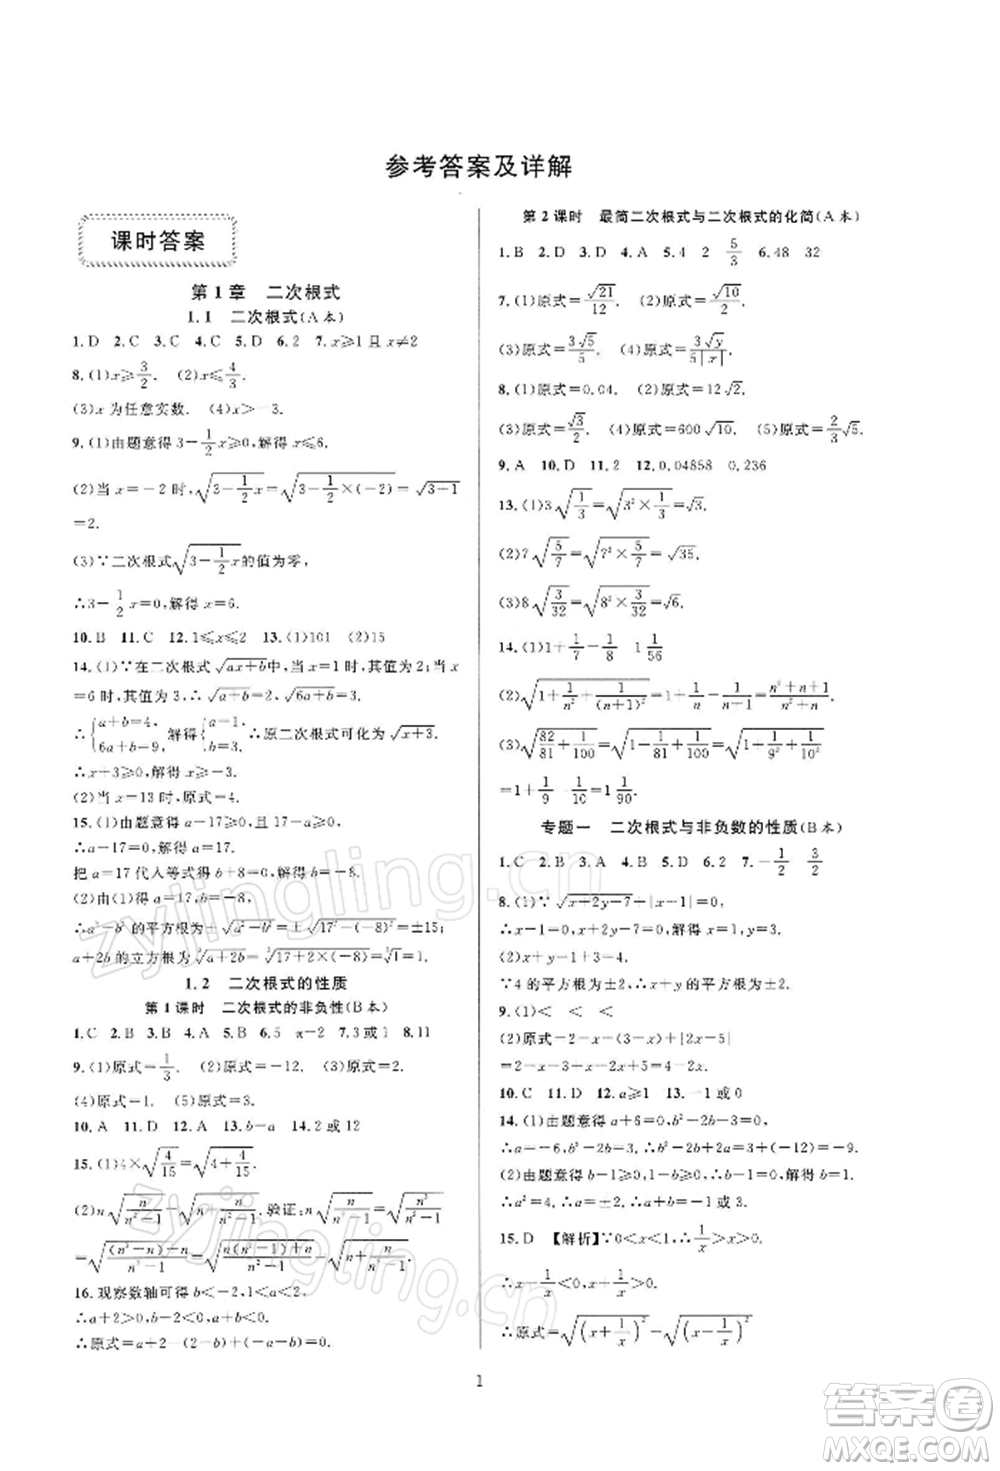 参考答案及详解
课时答案
第1章 二次根式
1.1 二次根式(A本)
1.D 2.C 3.C 4.C 5.D 6.2 7.x⩾1且x≠2
8.(1)x⩾3/2. (2)x⩽4/3.
(3)x 为任意实数. (4)x>-3.
9.(1)由题意得 3-1/2x⩾0,解得 x⩽6.
(2)当 x=-2 时,√(3-1/2x)=√(3-1/2×(-2))=√(3-1)
=2.
(3)∵二次根式√(3-1/2x)的值为零,
∴3-1/2x=0,解得 x=6.
10.B 11.C 12.1⩽x⩽2 13.(1)101 (2)15
14.(1)∵在二次根式√(ax+b)中,当 x=1 时,其值为 2;当 x
=6 时,其值为 3,∴√(a+b)=2,√(6a+b)=3.
∴{a+b=4, 6a+b=9, 解得{a=1, b=3. ∴原二次根式可化为√(x+3.)
∴x+3⩾0,解得 x⩾-3.
(2)当 x=13 时,原式=4.
15.(1)由题意得 a-17⩾0,且 17-a⩾0,
∴a-17=0,解得 a=17.
把 a=17 代入等式得 b+8=0,解得 b=-8.
(2)由(1)得 a=17,b=-8,
∴a²-b²的平方根为±√(a²-b²)=±√(17²-(-8)²)=±15;
a+2b 的立方根为∛(a+2b)=∛(17+2×(-8))=∛1=1.
1.2 二次根式的性质
第1课时 二次根式的非负性(B本)
1.C 2.B 3.B 4.A 5.B 6.5 π-2 7.3或1 8.11
9.(1)原式=1/3. (2)原式=-12. (3)原式=2.
(4)原式=1. (5)原式=3.
10.A 11.D 12.C 13.b-a 14.2或12
15.(1)4×√(4/15)=√(4+4/15)
(2)n√(n/(n²-1))=√(n+n/(n²-1)).验证:n√(n/(n²-1))=√(n³/(n²-1))
=√(((n³-n)+n)/(n²-1))=√((n(n²-1)+n)/(n²-1))=√(n+n/(n²-1))
16.观察数轴可得 b<2,-1<a<2,
∴a+2>0,b-2<0.
∴原式=a+2-(2-b)=a+2-2+b=a+b.
第2课时 最简二次根式与二次根式的化简(A本)
1.B 2.D 3.D 4.A 5.4 2 5/3 6.48 32
7.(1)原式=√21/12. (2)原式=√10/2.
(3)原式=3√5/5. (4)原式=3√y/5|x|.
8.(1)原式=0.04. (2)原式=12√2.
(3)原式=√3/2. (4)原式=600√10. (5)原式=2/3√5.
9.A 10.D 11.2 12.0.04858 0.236
13.(1)3√(1/3)=√(3²×1/3)=√3.
(2)7√(5/7)=√(7²×5/7)=√35.
(3)8√(3/32)=√(8²×3/32)=√6.
14.(1)1+1/7-1/8 1 1/56
(2)√(1+1/n²+1/(n+1)²)=1+1/n-1/(n+1)=(n²+n+1)/(n²+n)
(3)√(82/81+1/100)=√(1+1/81+1/100)=√(1+1/9²+1/10²)
=1+1/9-1/10=1 1/90.
专题一 二次根式与非负数的性质(B本)
1.C 2.B 3.B 4.C 5.D 6.2 7.-1/2 3/2
8.(1)∵√(x+2y-7)+|x-1|=0,
∴x-1=0,x+2y-7=0,解得 x=1,y=3.
(2)∵x=1,y=3,∴x+y=1+3=4.
∵4 的平方根为±2,∴x+y 的平方根为±2.
9.(1)< < <
(2)原式=2-x-(3-x)+|2x-5|
=2-x-3+x-2x+5=4-2x.
10.C 11.D 12.a⩾2 13.-1或0
14.(1)由题意得 a+6=0,b²-2b-3=0,
∴a=-6,b²-2b=3.∴b²-2b+2a=3+(-12)=-9.
(2)由题意得 b-1⩾0,1-b⩾0,∴b-1=0,解得 b=1.
∴a²=4,∴a=±2.∴a-b=1或-3.
15.D 【解析】∵0<x<1,∴1/x>1,∴1/x>x.
∴x-1/x<0,x+1/x>0.
∴原式=√((x+1/x)²)-√((x-1/x)²)
1
zyjingling.cn
zyjingling.cn
答案圈
MXQE.COM